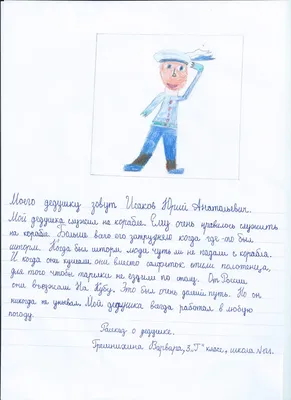 Моего дедушку зовут Исаков Юрий Анатольевич.
Мой дедушка служил на корабле. Ему очень нравилось служить
на корабле. Больше всего его затрудняло когда где-то был
шторм. Когда был шторм люди чуть ли не падали с корабля.
И когда они кушали они вместо салфеток стели полотенца,
для того чтобы тарелки не ездили по столу. От Росии
они въезжали На Кубу. Это был очень далёкий путь. Но он
никогда не унывал. Мой дедушка всегда работал в любую
погоду.
Рассказ о дедушке.
Гремихина Варвара, 3 "Г" класс, школа